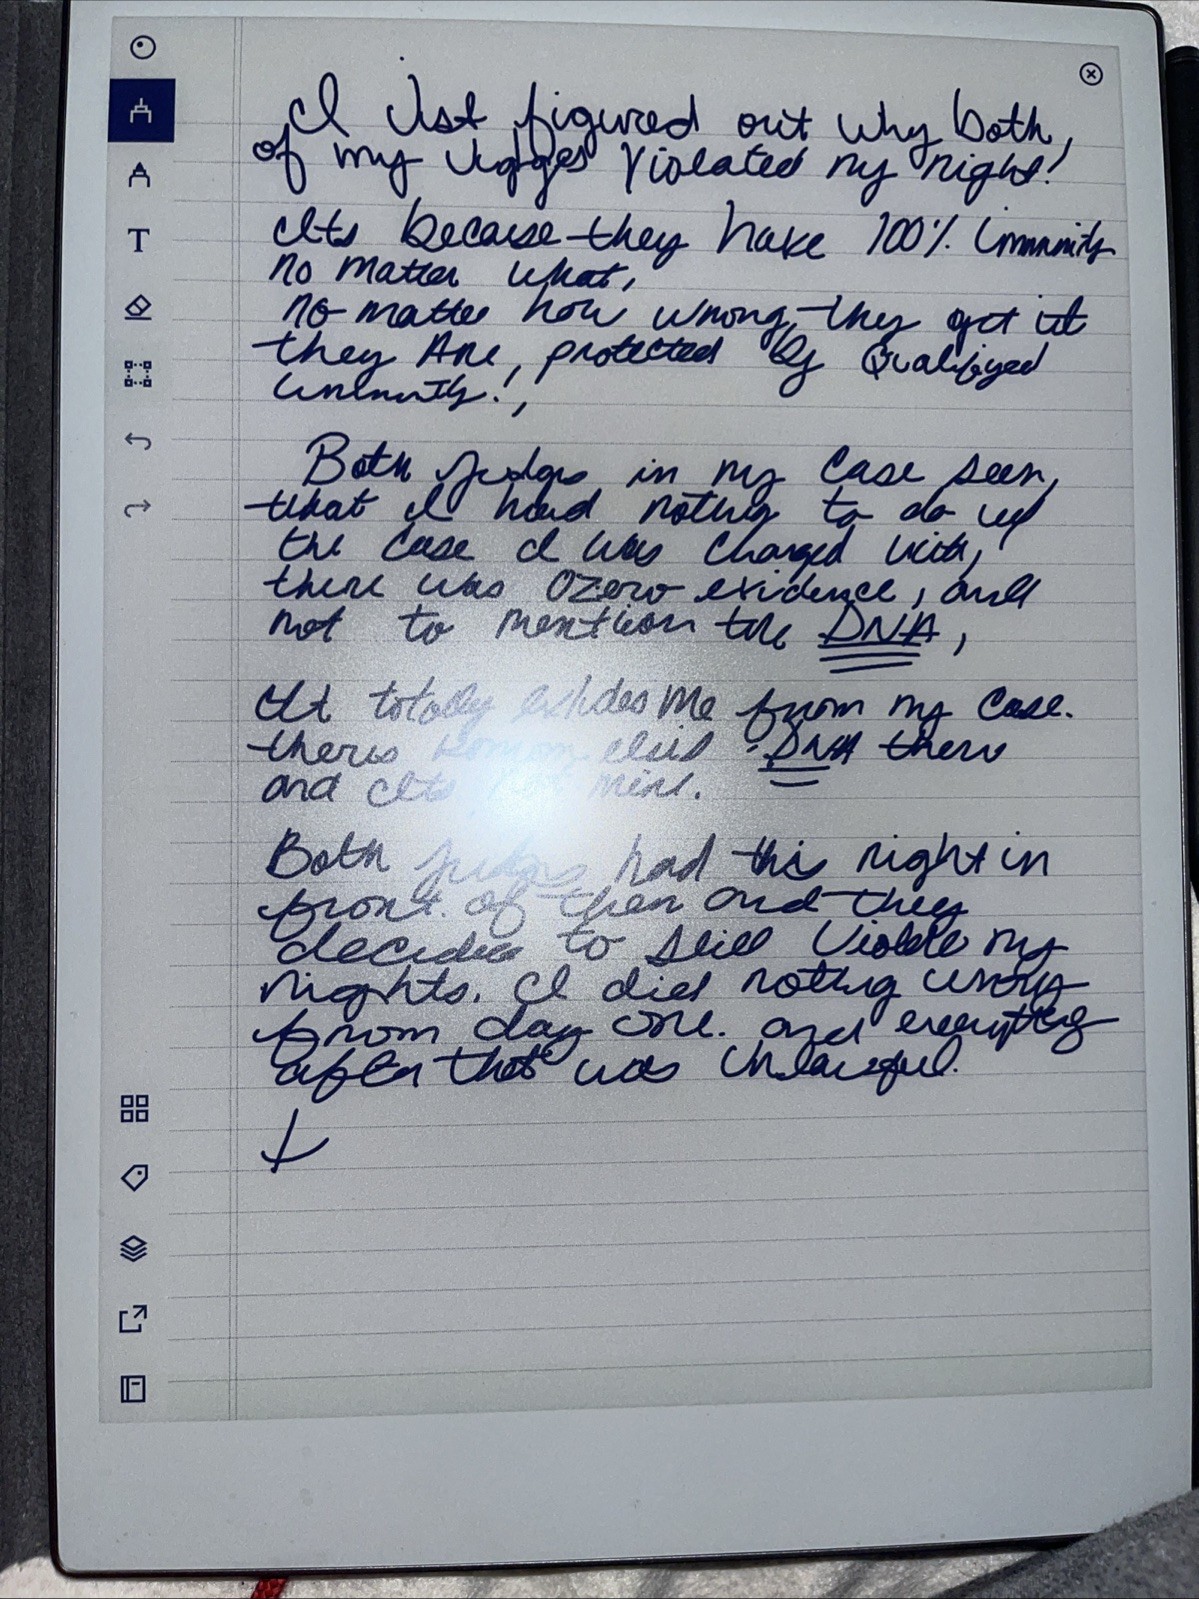 I Just figured out why both,
of my Judges Violated my right!
Its because they have 100% immunity
no matter what,
no matter how wrong, they get it
they Are, protected by Qualifyed
immunity!,
Both judges in my case seen,
that I had nothing to do w/
the case I was charged with,
there was 0zero evidence, and
not to mention the DNA,
It totally exludes me from my case.
theris DNA there
and its not mine.
Both judges had this right in
front of then and they
decides to still Violate my
rights. I did noting wrong
from day one. and everything
after that was unlawful.
↓
T